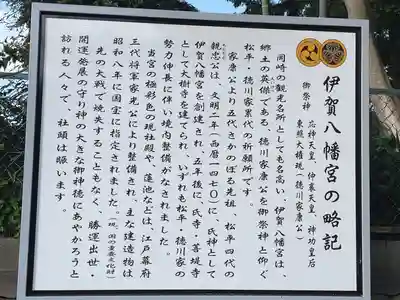 伊賀八幡宮の略記
御祭神 応神天皇、仲哀天皇、神功皇后
東照大権現（徳川家康公）
岡崎の観光名所としても名高い、伊賀八幡宮は、
郷土の英傑である、徳川家康公を御祭神と仰ぐ
松平・徳川家累代の祈願所です。
家康公より五代さかのぼる先祖、松平四代の
親忠公は、文明二年（西暦一四七〇）に、氏神として
伊賀八幡宮を創建され、五年後に、氏寺・菩提寺
として大樹寺を建てられ、いずれも松平・徳川家の
勢力伸長に伴い境内整備がなされました。
当宮の極彩色の現社殿や、蓮池などは、江戸幕府
三代将軍家光公により整備され、主な建造物は
昭和八年に国宝に指定されました。（現、国の重要文化財）
先の大戦で焼失することもなく、勝運出世・
開運発展の守り神の大きな御神徳にあやかろうと
訪れる人々で、社頭は賑います。